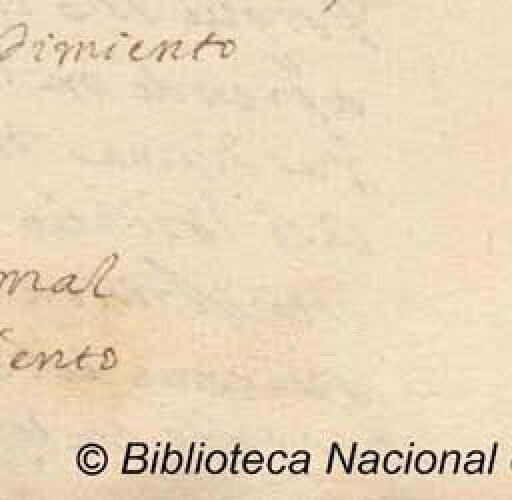 dimiento
mal
iento
© Biblioteca Nacional